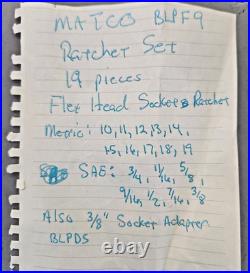 MATCO BLPF9
Ratchet Set
19 pieces
Flex Head Sockets Ratchet
Metric: 10, 11, 12, 13, 14,
15, 16, 17, 18, 19
SAE: 3/4, 1/16, 5/8,
9/16, 1/2, 7/16, 3/8
Also 3/8" Socket Adapter
BLPDS